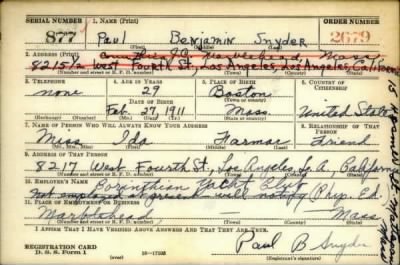 SERIAL NUMBER 1. NAME (Print) ORDER NUMBER
877 Paul Benjamin Snyder 2679
(First) (Middle) (Last)
2. ADDRESS (Print)
8215½ West Fourth St, Los Angeles, Los Angeles, California
(Number and street or R. F. D. number) (Town) (County) (State)
3. TELEPHONE 4. AGE IN YEARS 5. PLACE OF BIRTH 6. COUNTRY OF CITIZENSHIP
none 29 Boston
DATE OF BIRTH (Town or county)
Feb. 27, 1911 Mass. United States
(Exchange) (No.) (Mo.) (Day) (Yr.) (State or country)
7. NAME OF PERSON WHO WILL ALWAYS KNOW YOUR ADDRESS 8. RELATIONSHIP OF THAT PERSON
Ida Harmon Friend
(Mr., Mrs., Miss) (First) (Middle) (Last)
9. ADDRESS OF THAT PERSON
8217 West Fourth St, Los Angeles, L. A., California
(Number and street or R. F. D. number) (Town) (County) (State)
10. EMPLOYER'S NAME
Corinthian Yacht Club
Not employed at present will notify Phys. Ed.
11. PLACE OF EMPLOYMENT OR BUSINESS
Marblehead Mass
(Number and street or R. F. D. number) (Town) (County) (State)
I AFFIRM THAT I HAVE VERIFIED ABOVE ANSWERS AND THAT THEY ARE TRUE.
Paul B Snyder
REGISTRATION CARD
D. S. S. Form 1 (Registrant's signature)